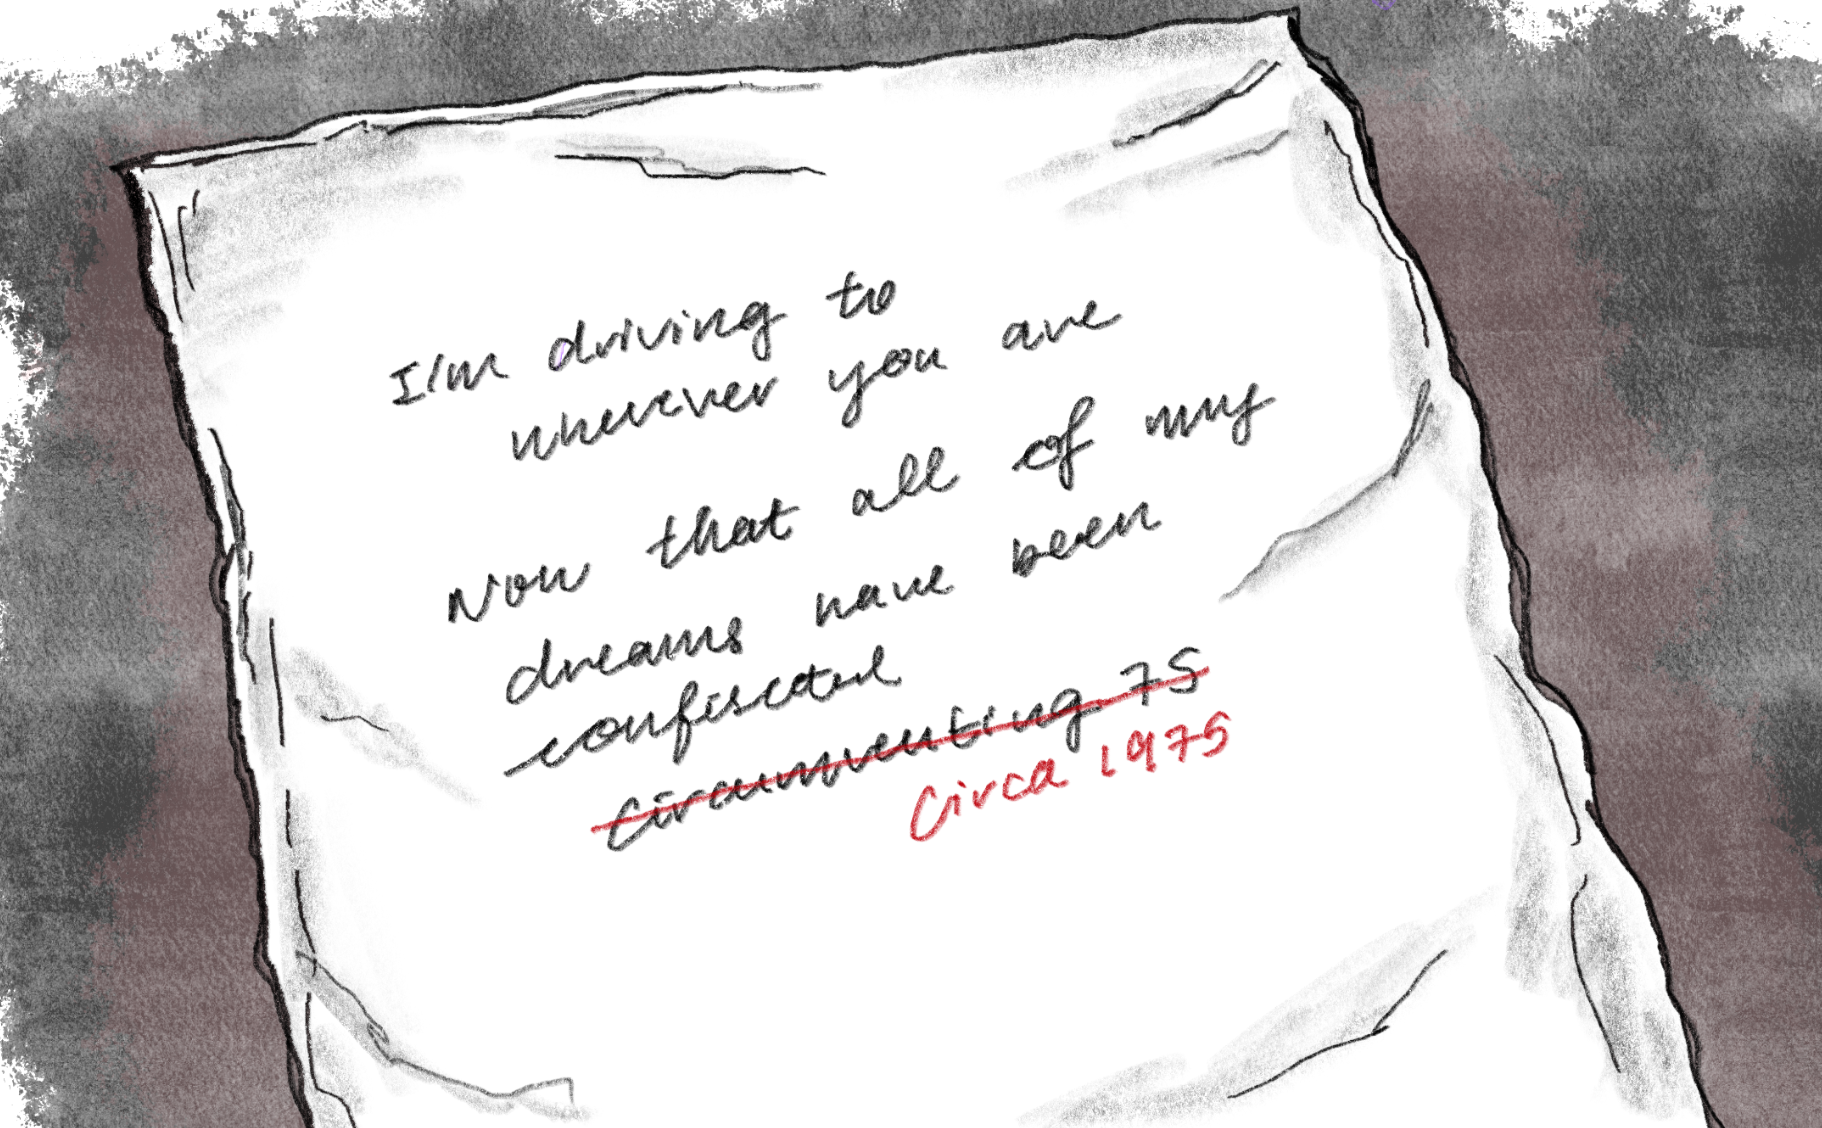 I'm driving to
wherever you are
Now that all of my
dreams have been
confiscated
Circumventing 75
Circa 1975